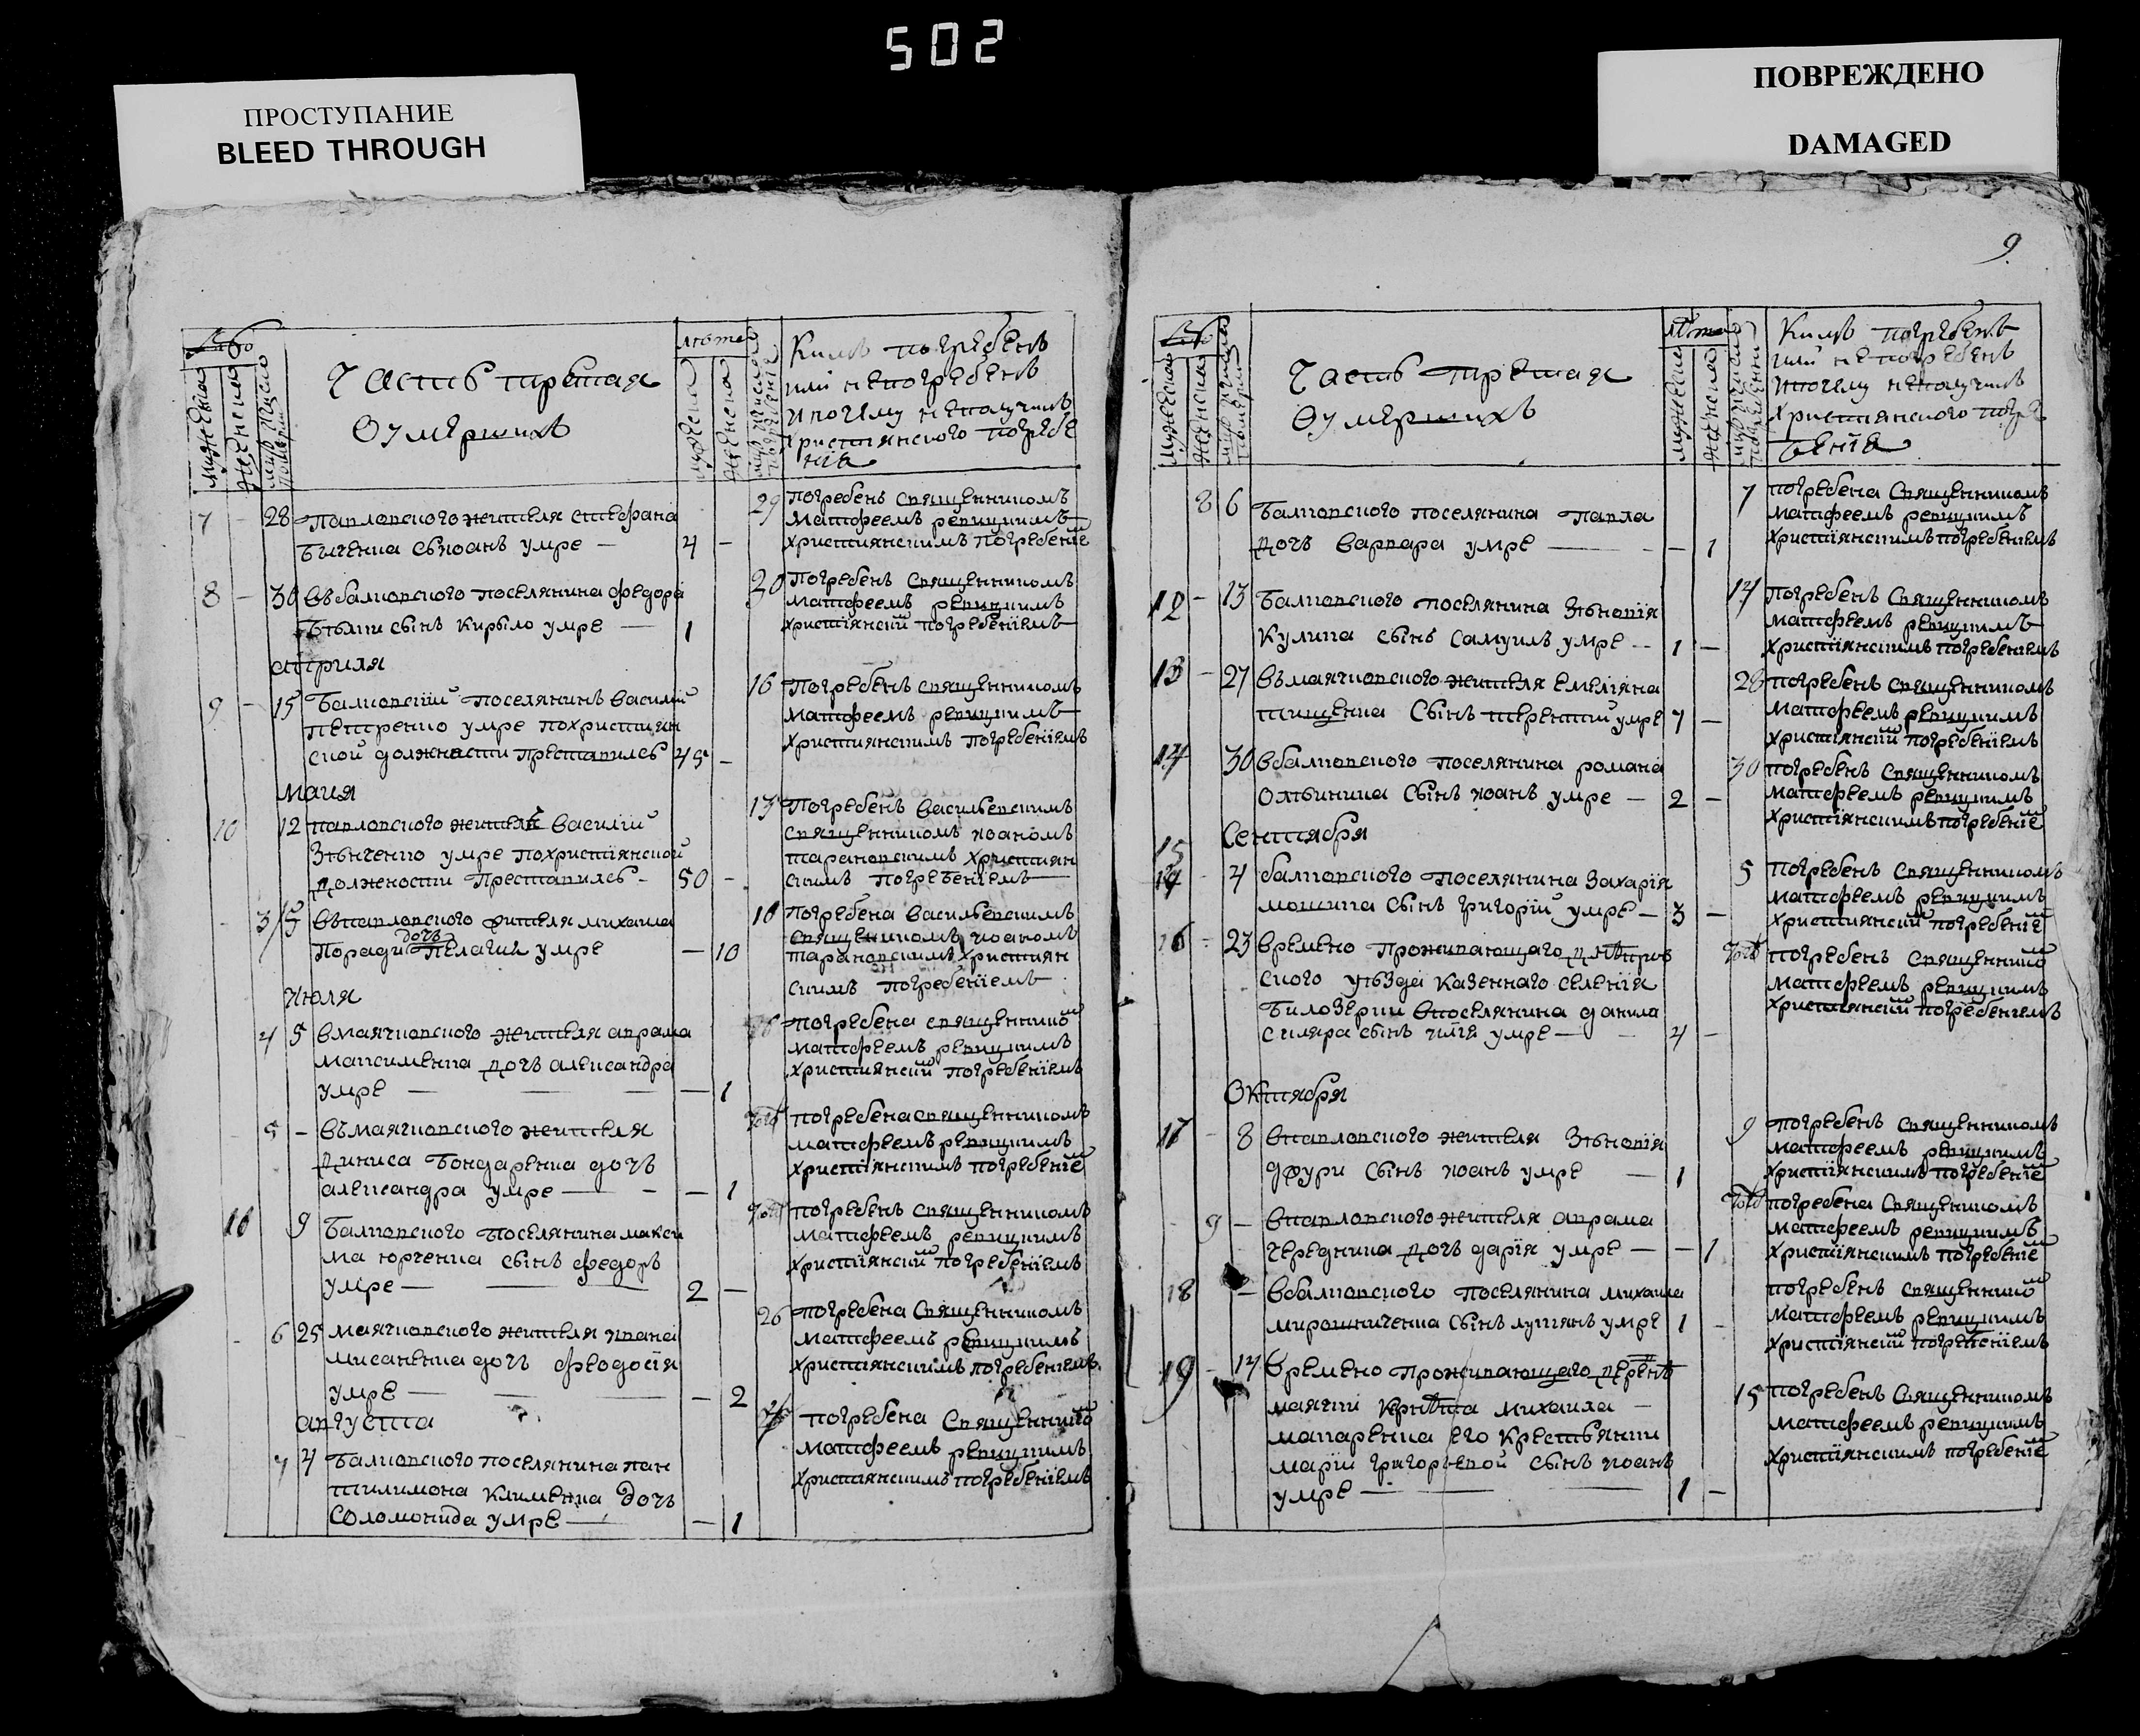 502
ПРОСТУПАНИЕ
BLEED THROUGH
ПОВРЕЖДЕНО
DAMAGED
Часть третая
О умершихъ
лѣта
Кимъ погребенъ
или непогребенъ
и почему неполучилъ
християнского погребе
нія
7 - 28 Павловского жителя стефана
сынъ іоанъ умре — 4 -
29 погребенъ священникомъ
матфеемъ
християнскимъ погребеніе
8 - 30 въбалковского поселянина федора
сынъ Кирыло умре — 1
30 Погребенъ священникомъ
матфеемъ
християнски погребеніемъ
априля
9 - 15 Балковскій поселянинъ василий
петренко умре похристиян
ской должности преставилсь 45 -
16 Погребенъ священникомъ
матфеемъ
християнскимъ погребеніемъ
Маия
10 12 павловского жителя василій
Зѣнченко умре похристиянской
должности преставилсь - 50 -
13 Погребенъ васильевскимъ
священникомъ иоаномъ
тарановскимъ християн
скимъ погребеніемъ
- 3 15 въпавловского жителя михаила
Поради дочь Пелагия умре — 10
16 погребена васильевскимъ
священникомъ иоаномъ
тарановскимъ християн
скимъ погребеніемъ
июля
4 5 вмаячковского жителя аврама
максименка дочь александра
умре — — — 1
погребена священнико
матфеемъ
християнски погребеніемъ
- 5 - въмаячковского жителя
диниса бондаренка дочь
александра умре — - — 1
погребена священникомъ
матфеемъ
християнскимъ погребеніе
11 9 Балковского поселянина макси
ма юрченка сынъ федоръ
умре — — 2 —
погребенъ священникомъ
матфеемъ
християнски погребеніемъ
- 6 25 маячковского жителя ивана
мисаненка дочь феодосія
умре — — — 2
26 погребена священникомъ
матфеемъ
християнскимъ погребеніемъ
августа
7 4 балковского поселянина пан
тилимона клименка дочь
соломонида умре — — 1
погребена священнико
матфеемъ
християнскимъ погребеніемъ
9
Часть третая
О умершихъ
лѣта
Кимъ погребенъ
или непогребенъ
ипочему неполучилъ
християнского погре
бенія
8 6 Балковского поселянина павла
дочь варвара умре — — 1
7 погребена священникомъ
матфеемъ
христіянскимъ погребеніемъ
12 - 13 Балковского поселянина Зѣновія
Кулика сынъ Самуилъ умре -- 1 —
14 погребенъ священникомъ
матфеемъ
християнскимъ погребеніемъ
13 - 27 въмаячковского жителя емеліяна
тищенка сынъ терентій умре 7 —
28 погребенъ священникомъ
матфеемъ
християнски погребеніемъ
14 30 вбалковского поселянина романа
сынъ иоанъ умре — 2 -
30 погребенъ священникомъ
матфеемъ
християнскимъ погребеніе
Сентября
15 - 4 балковского поселянина Захарія
сынъ григорій умре — 3 —
5 погребенъ священникомъ
матфеемъ
християнски погребеніе
16 - 23 времено проживающаго днѣпров
ского уѣзда казенного селенія
Билозерки поселянина данила
сынъ илія умре — - 4 -
погребенъ священнико
матфеемъ
християнски погребеніемъ
Октября
17 - 8 впавловского жителя Зѣновія
сынъ иоанъ умре — 1
9 погребенъ священникомъ
матфеемъ
християнскимъ погребеніе
- 9 — впавловского жителя аврама
чередника дочь дарія умре — — 1
погребена священникомъ
матфеемъ
христіянскимъ погребеніе
18 — вбалковского поселянина михаила
мирошниченка сынъ лукіянъ умре 1 -
погребенъ священнико
матфеемъ
християнски погребеніемъ
19 - 14 времено проживающаго
маячки михаила —
макаренка его крестьянки
маріи григорьевой сынъ иоанъ
умре — — — 1 —
15 погребенъ священникомъ
матфеемъ
християнскимъ погребеніе